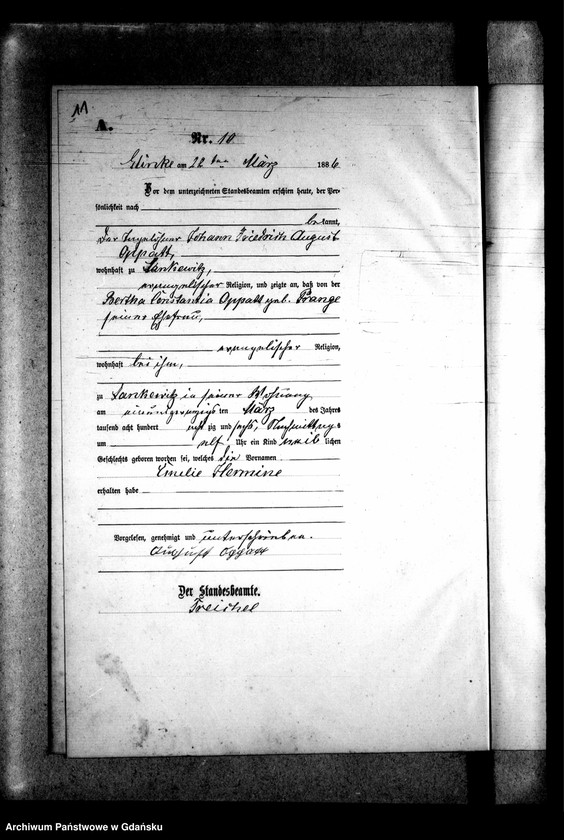 11
A.
Nr. 10
am 22 ten März 1886
Vor dem unterzeichneten Standesbeamten erschien heute, der Per-
sönlichkeit nach
bekannt,
Der Johann Friedrich August
Oppatt,
wohnhaft zu Lankewitz,
evangelischer Religion, und zeigte an, daß von der
Bertha Constantia Oppatt geb. Prange
seiner Ehefrau,
evangelischer Religion,
wohnhaft bei ihm,
zu Lankewitz in seiner Wohnung
am ten März des Jahres
tausend acht hundert achtzig und sechs, Nachmittags
um elf Uhr ein Kind weiblichen
Geschlechts geboren worden sei, welches die Vornamen
Emilie Hermine
erhalten habe
Vorgelesen, genehmigt und unterschrieben.
August Oppatt
Der Standesbeamte.
Treichel
Archiwum Państwowe w Gdańsku